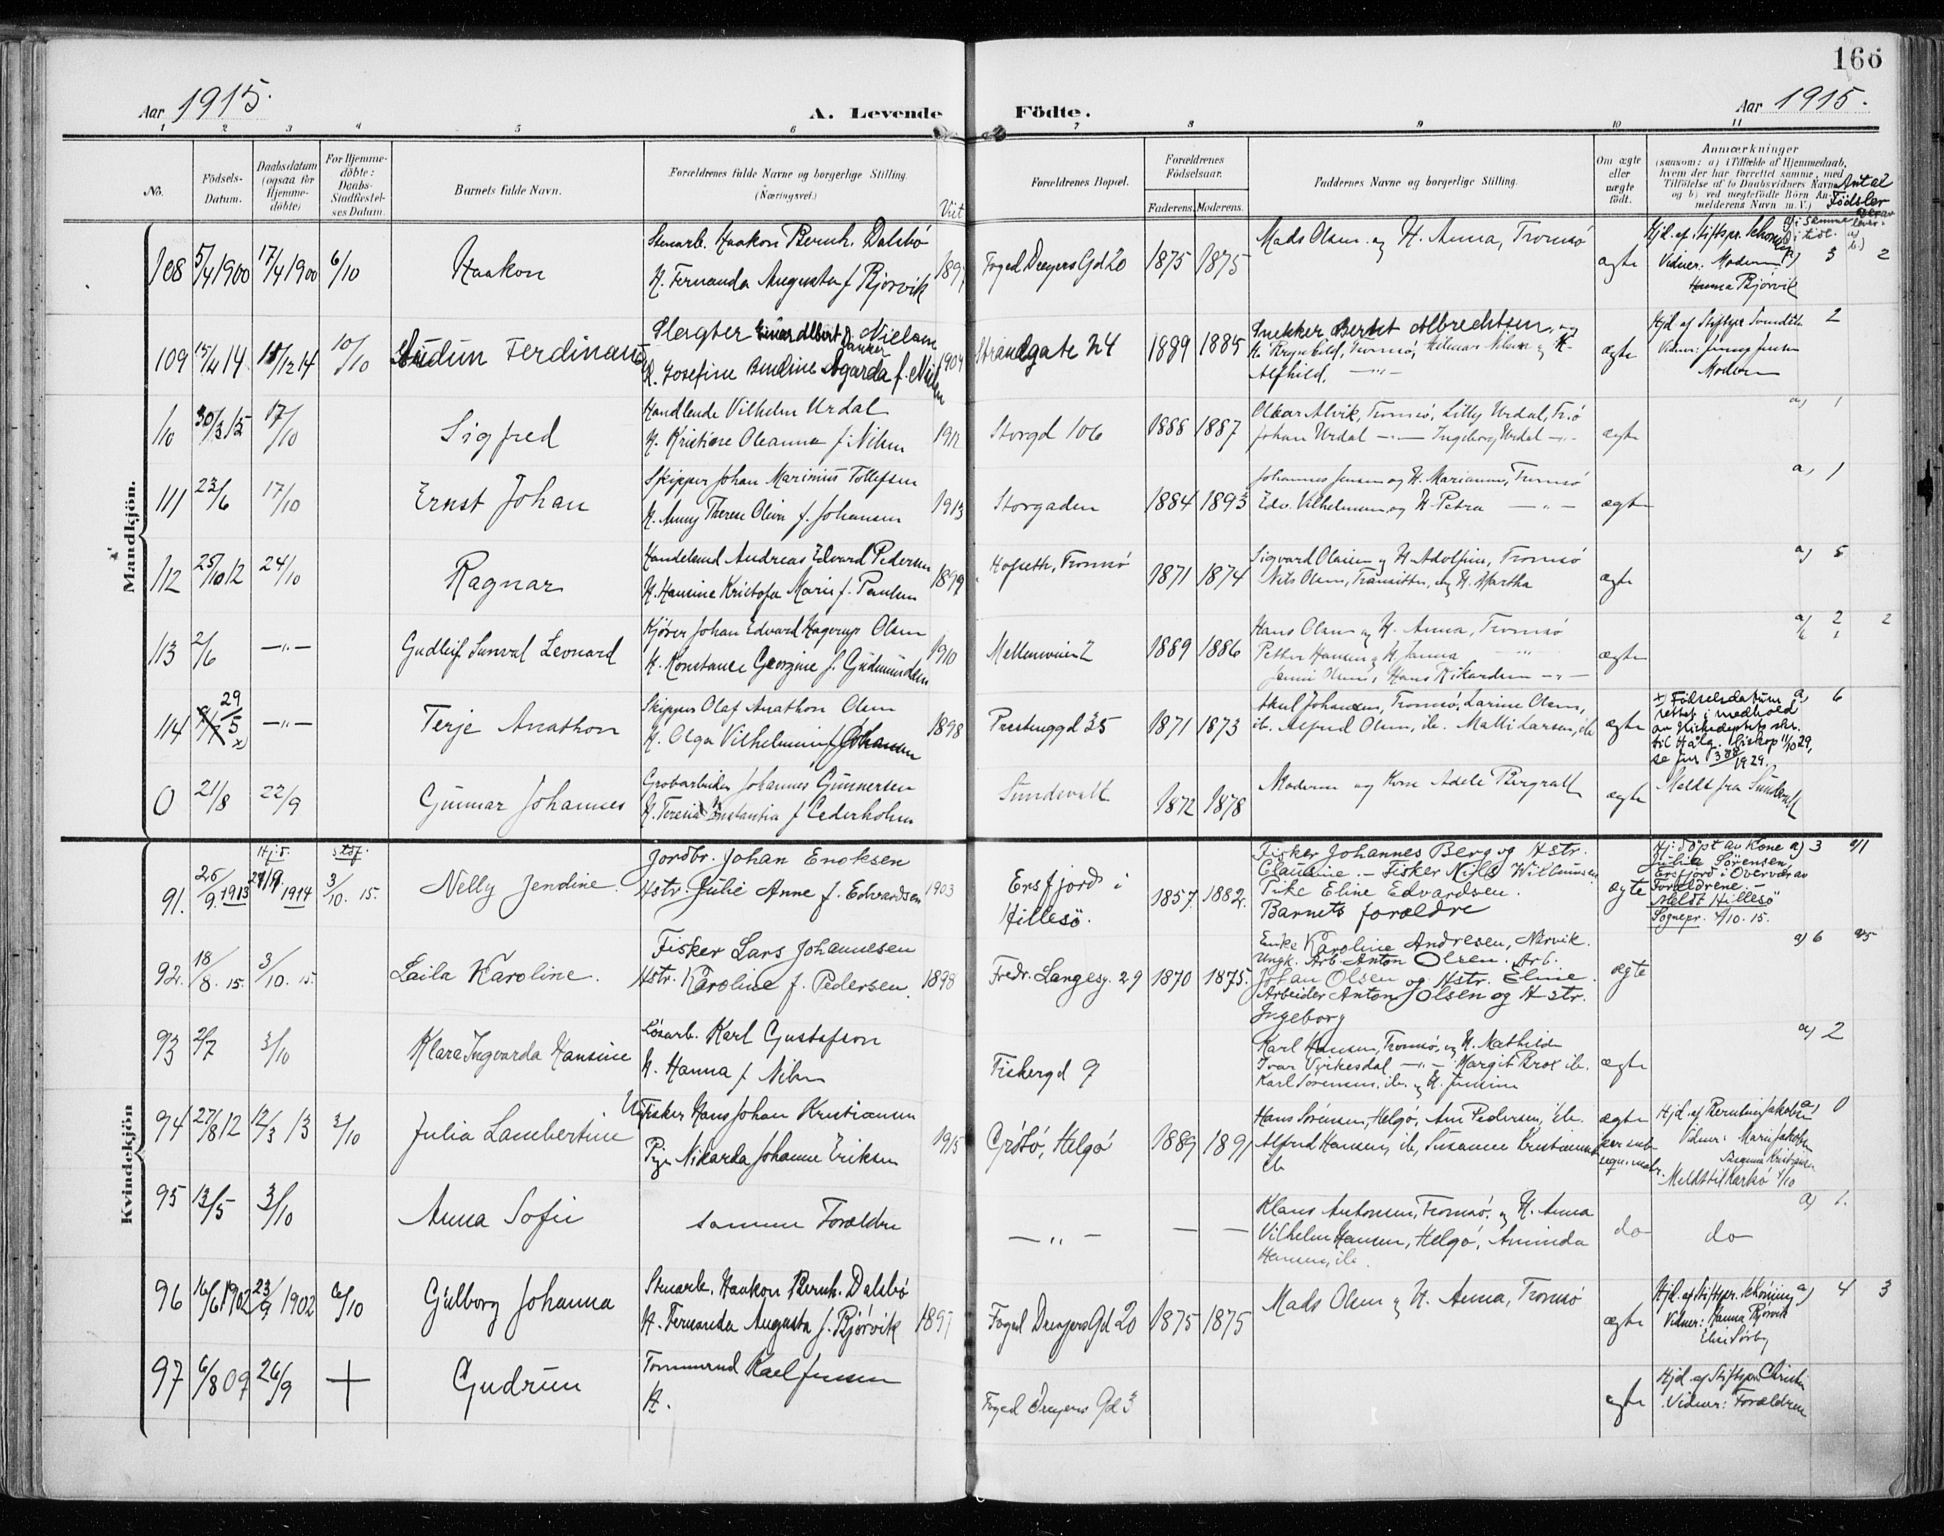 166
Aar 1915.
A. Levende Födte.
Aar 1915.
1 2 3 4 5 6 7 8 9 10 11
No.
Födsels-
Datum.
Daabsdatum
(ogsaa for
Hjemme-
döbte)
For Hjemme-
döbte:
Daabs-
Stadfæstel-
ses Datum.
Barnets fulde Navn.
Forældrenes fulde Navne og borgerlige Stilling.
(Næringsvei.)
Viet
Forældrenes Bopæl.
Forældrenes
Födselsaar.
Faderens. Moderens.
Faddernes Navne og borgerlige Stilling.
Om ægte
eller
uægte
födt.
Anmærkninger
(saasom: a) i Tilfælde af Hjemmedaab,
hvem der har forrettet samme, med
Tilföielse af to Daabsvidners Navne
og b) ved uægtefödte Börn An-
melderens Navn m. V.)
Antal
Födsler
Mandkjön.
108 5/4 1900 17/4 1900 6/10 Haakon
Haakon Bernh. Dalsbø
H. Fernanda Augusta f. Bjørvik
Foged Dreyers Gd 20 1875 1875
Mads Olsen og H. Anna, Tromsø
ægte
Hjd. af Stiftspr. Schøning
Vidner: Moderen
Hanna Bjørvik
3 2
109 10/10 Ferdinand
Slagter Einar Albert Nielsen
H. Josefine
Strandgate 24 1889 1885
Snekker Albrechtsen
Alfhild.
ægte
Moderen
2
110 30/3 15 17/10 Sigfred
Handlende Vilhelm Urdal
H. Kristine Oleanna f. Nilsen
1912
Storgd 106 1888 1887
Oskar Alvik, Tromsø, Lilly Urdal, Tr.ø
Johan Urdal —"— Ingeborg Urdal —"—
ægte
a) 1
111 23/6 17/10 Ernst Johan
Skipper Johan Marinius Tollefsen
H. Anny Therese Oliva f. Johansen
1913
Storgaden 1884 1893
Johannes Jensen og H. Marianna, Tromsø
Edv. Vilhelmsen og H. Petra —"—
ægte
a) 1
112 25/10 12 24/10 Ragnar
Handelsmd Andreas Edvard Pedersen
H. Hansine Kristofa Marie f. Paulsen
1899
Tromsø 1871 1874
Sigvard Olsen og H. Adolfine, Tromsø
Nils Olsen, og H. Hartha
ægte
a) 5
113 2/6 —"— Gudleif Sunval Leonard
Kjører Johan Edvard Hagerup Olsen
H. Konstance Georgine f. Gudmundsen
1910
Mellemveien 2 1889 1886
Hans Olsen og H. Anna, Tromsø
Petter Hansen og H. Janna —"—
Hans Rikardsen —"—
ægte
2 2
114 29/5 x) —"— Terje Anathon
Skipper Olaf Anathon Olsen
H. Olga Vilhelmine f. Johansen
1898
Prestenggd 35 1871 1873
Johansen, Tromsø, Larine Olsen,
ib. Alfred Olsen, ib. Malli Larsen, ib
ægte
x) Födselsdatum
rettet i medhold
av Kirkedeptets skr.
til Hålg. biskop 11/10 29,
se jnr 388/1929.
a) 6
0 21/8 22/9 Gunnar Johannes
Grovarbeider Johannes Gunnersen
H. Teresia Constantia f. Cederholm
Sundsvall 1872 1878
Moderen og Kone Adele Bergvall
ægte
Meldt fra Sundsvall
Kvindekjön
91. 26/9 1913 Hj.d. 1914 Stdf. 3/10. 15. Nelly Jendine.
Jordbr. Johan Enoksen
Hstr. Julie Anne f. Edvardsen
1903
Ersfjord i
Hillesö.
1857. 1882.
Fisker Johannes Berg og Hstr.
Claudine. — Fisker Nils Willumsen
Pike Eline Edvardsen.
Barnets forældre
ægte
Hj: döpt av Kone
Julie Sörensen,
Ersfjord i Overvær av
Forældrene. —
Meldt Hillesö
Sognepr. 4/10. 15.
a) 3
92. 18/8. 15. 3/10. 15. Laila Karoline.
Fisker Lars Johannesen
Hstr. Karoline f. Pedersen.
1898
Fredr. Langesg. 29 1870 1875.
Enke Karoline Andresen, Narvik.
Ungk. Arb. Anton Olsen. Arb.
Johan Olsen og Hstr. Eline.
Arbeider Anton Olsen og Hstr.
Ingeborg
ægte
a) 6
93 2/7 3/10 Klara Ingvarda Hansine
Løsarb. Karl Gustafson
H. Hanna f. Nilsen
Fiskergd 9
Karl Hansen, Tromsø, og H. Mathilde
Ivar Virkesdal —"— Margit Brox ib.
Karl Sørensen, ib. og H. Jensine
ægte
a) 2
94 27/8 12 12/3 13 3/10 Julia Lambertine
Fisker Hans Johan Kristiansen
Pige Nikarda Johanne Eriksen
1915
Grøtø, Helgø 1889 1891
Hans Sørensen, Helgø, Ane Pedersen, ib.
Alfred Hansen, ib, Susanne Kristiansen
ib
ægte
per sub-
sequ. matr.
Hjd. af Berntine Jakobsen
Vidner: Marie Jakobsen
Susanna Kristiansen
Meldt til Karlsø 4/10
0
95 13/5 3/10 Anna Sofie
samme Forældre
—"— — —
Klaus Antonsen, Tromsø, og H. Anna
Vilhelm Hansen, Helgø, Aminda
Hansen, ib.
do do
a) 1.
96 16/6 1902 23/9 1902 6/10 Gulborg Johanna
Haakon Bernh. Dalsbø
H. Fernanda Augusta f. Bjørvik
1897
Foged Dreyers Gd 20 1875 1875
Mads Olsen og H. Anna, Tromsø
ægte
Hjd. af Stiftspr. Schøning
Vidner: Hanna Bjørvik
Elise Sørby
a) 4 3
97 6/8 09 26/9 + Gudrun
Tømmermd Karl Jensen
H.
Foged Dreyers Gd 3
ægte
Hjd. af Stiftspr. Christie
Vidner: Forældrene